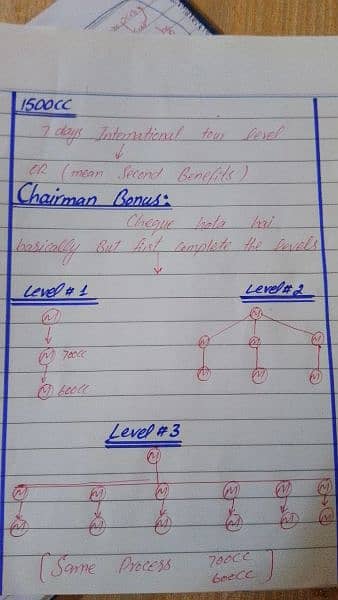 1500CC
7 days International tour level
OR (mean Second Benefits)
Chairman Bonus:
Cheque hota hai
basically But fist complete the levels
Level # 1
Level # 2
M
M 700cc
M 600cc
M
M M M
M M M
Level # 3
M
M M M M M M
M M M M M M
[Same Process 700cc
600cc]